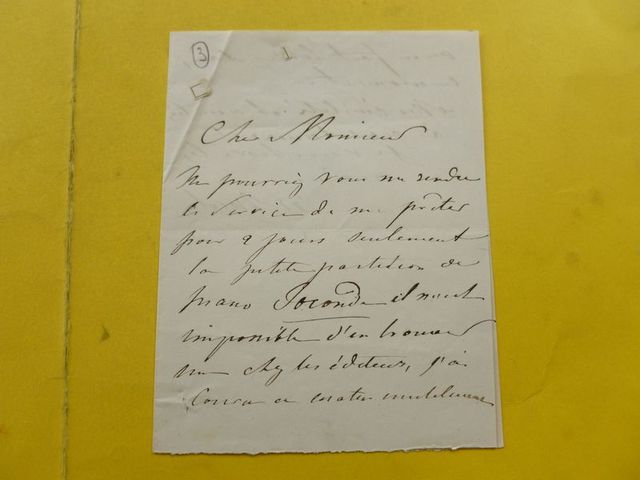 3
Cher Monsieur
Ne pourriez vous me rendre
le Service de me prêter
pour 2 jours seulement
la petite partition de
piano Joconde il m'est
impossible d'en trouver
une chez les éditeurs, j'ai
couru ce matin inutilement